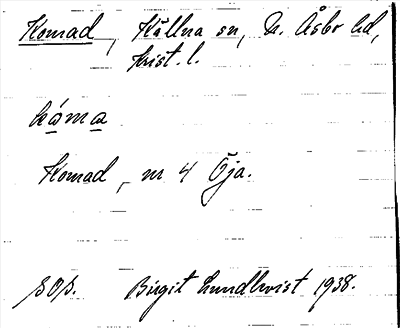 Komad, Källna sn, N. Åsbo hd,
Krist. l.
kåma
Komad, nr 4 Öja.
SOS. Birgit Lundkvist 1938.